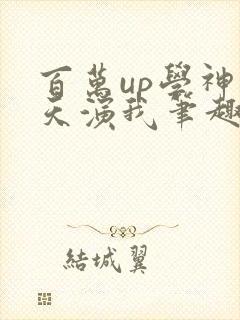 百萬up學神
天演我筆趣
結城翼